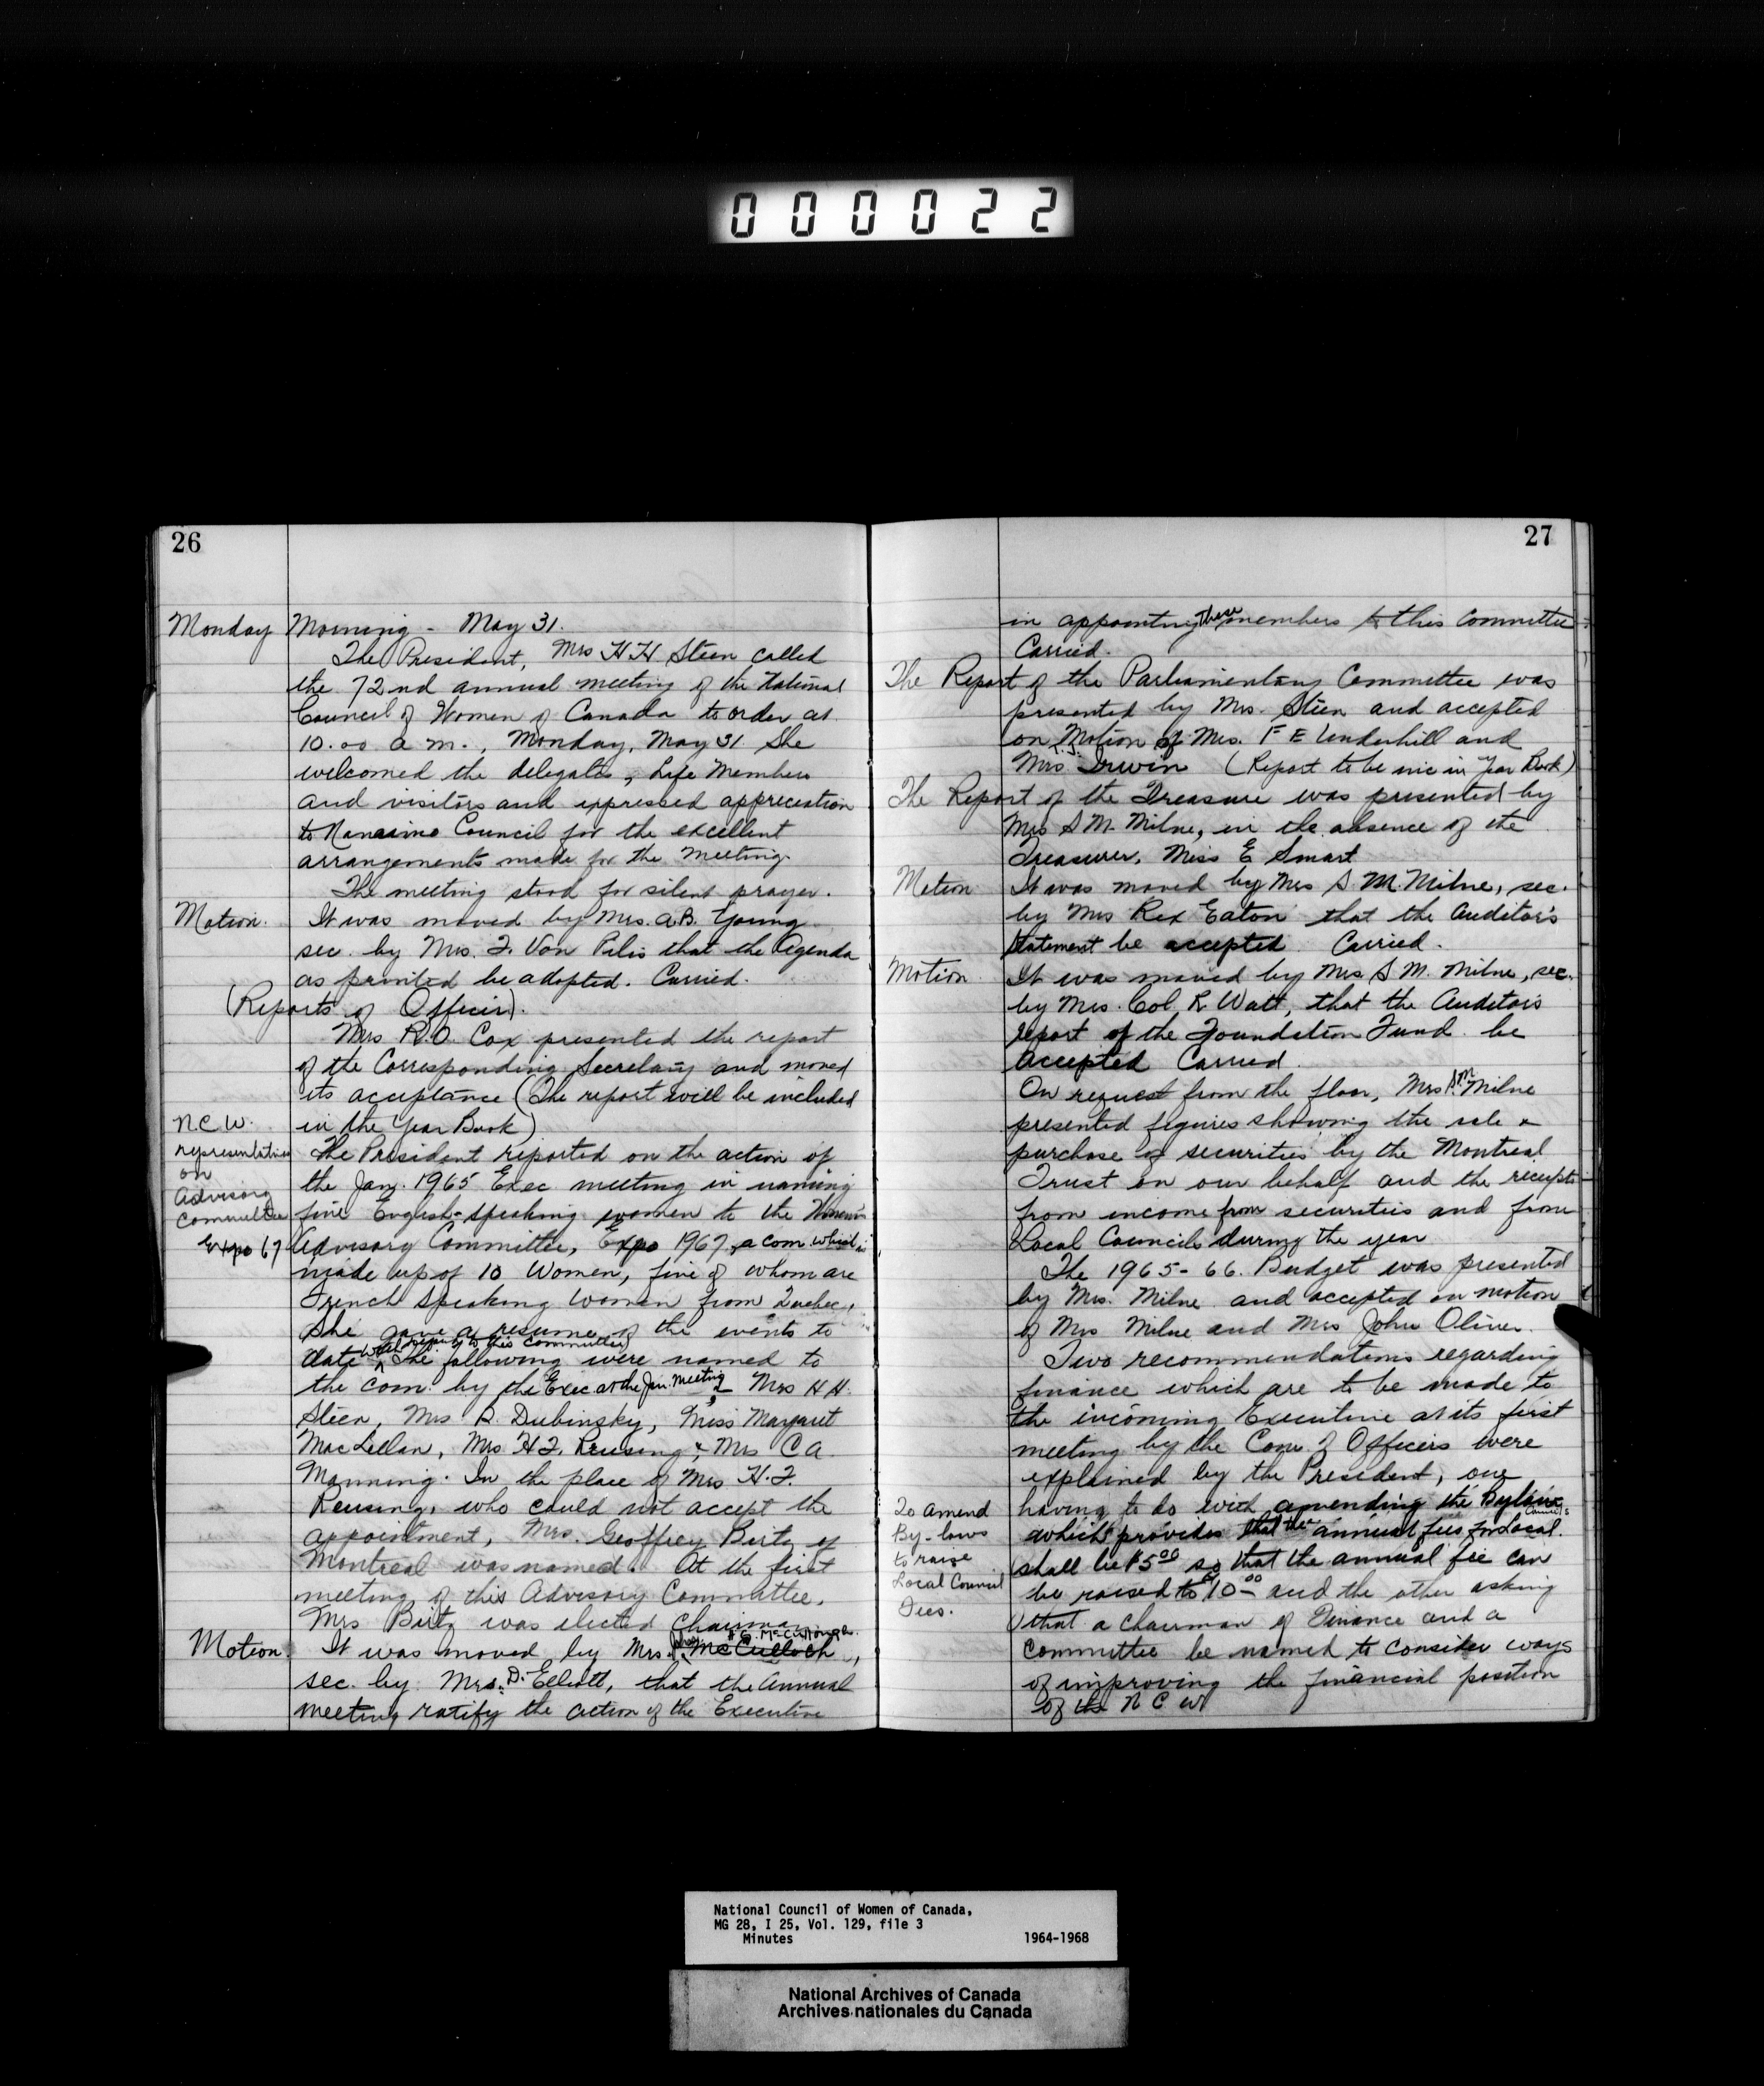 000022
26
Monday Morning - May 31.
The President, Mrs H H Steen called
the 72nd annual meeting of the National
Council of Women of Canada to order at
10.00 a m., Monday, May 31. She
welcomed the delegates, Life Members
and visitors and expressed appreciation
to Nanaimo Council for the excellent
arrangements made for the meeting.
The meeting stood for silent prayer.
Motion. It was moved by Mrs. A.B. Young
sec. by Mrs. F. Von Pilis that the Agenda
as printed be adopted. Carried.
(Reports of Officers).
Mrs R.O. Cox presented the report
of the Corresponding Secretary and moved
its acceptance (The report will be included
in the Year Book)
N.C.W.
representatives
on
Advisory
Committee
Expo 67
The President reported on the action of
the Jan. 1965 Exec meeting in naming
five English-speaking women to the Women's
Advisory Committee, Expo 1967, a com. which is
made up of 10 Women, five of whom are
French speaking women from Quebec.
She gave a resume of the events to
date with regard to this committee. The following were named to
the com. by the Exec at the Jan. meeting, Mrs H H.
Steen, Mrs B. Dubinsky, Miss Margaret
MacLellan, Mrs H.F. Reusing & Mrs C A
Manning. In the place of Mrs H.F.
Reusing, who could not accept the
appointment, Mrs. Geoffrey Birtz of
Montreal was named. At the first
meeting of this Advisory Committee,
Mrs Birtz was elected Chairman.
G. McCullough.
Motion. It was moved by Mrs. McCulloch,
sec. by Mrs. D. Elliott, that the Annual
meeting ratify the action of the Executive
27
in appointing these members to this Committee
Carried.
The Report of the Parliamentary Committee was
presented by Mrs. Steen and accepted
on Motion of Mrs. F E Underhill and
Mrs. Irwin (Report to be inc in Year Book)
The Report of the Treasure was presented by
Mrs S M. Milne, in the absence of the
Treasurer, Miss E Smart
Motion It was moved by Mrs S. M. Milne, sec.
by Mrs Rex Eaton that the Auditor's
statement be accepted. Carried.
Motion It was moved by Mrs S M. Milne, sec.
by Mrs. Col. R Watt, that the Auditor's
report of the Foundation Fund be
accepted Carried.
On request from the floor, Mrs S.M. Milne
presented figures showing the sale &
purchase of securities by the Montreal
Trust on our behalf and the receipts
from income from securities and from
Local Councils during the year
The 1965-66. Budget was presented
by Mrs. Milne and accepted on motion
of Mrs Milne and Mrs John Oliver.
Two recommendations regarding
finance which are to be made to
the incoming Executive at its first
meeting by the Com. of Officers were
explained by the President, one
To amend
By-laws
to raise
Local Council
Fees.
having to do with amending the Bylaws
which provides that the annual fees for Local Councils
shall be $5.00 so that the annual fee can
be raised to $10.00 and the other asking
that a Chairman of Finance and a
committee be named to consider ways
of improving the financial position
of the N C W
National Council of Women of Canada,
MG 28, I 25, Vol. 129, file 3
Minutes 1964-1968
National Archives of Canada
Archives nationales du Canada